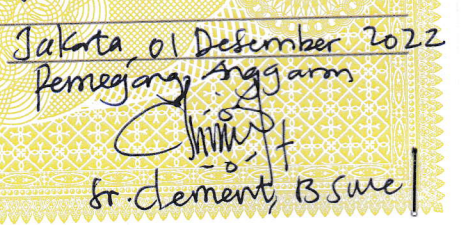 Jakarta, 01 Desember 2022
Pemegang Anggaran
Sr. Clement, B